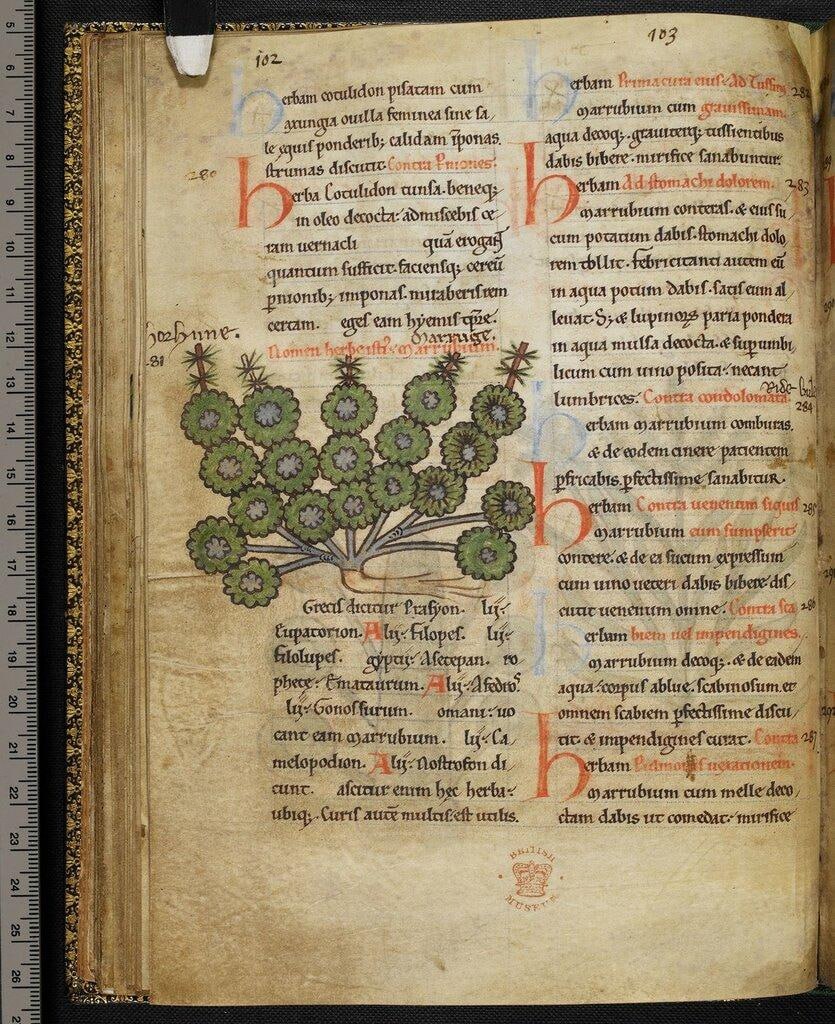 102
103
herbam cotulidon pisatam cum
axungia ouilla feminea sine sa
le equis ponderib; calidam īponas.
strumas discutit. Contra Pniones.
280
herba Cotulidon tunsa. beneq;
in oleo decocta. admiscebis ce
ram uernacli quā
quantum sufficit. faciensq; cereū
pnionib; imponas. miraberis rem
certam. eges eam hyemis tpre.
horhune.
Marruge.
81
Nomen herbe isti Marrubium.
Grecis dicitur Prasyon. lij.
Eupatorion. Alij. Filopes. lij.
Filolupes. gyptij. Asterpan. ro
phete. Emataurum. Alij. Afedros
lij. Gonosfurum. omani. uo
cant eam Marrubium. lij. Ca
melopodion. Alij. Nostrofon di
cunt. ascitur enim hęc herba
ubiq;. Curis autē multis est utilis.
herbam Prima cura eius. Ad Tussim
282
Marrubium cum grauissimam.
aqua decoq;. grauiterq; tussientibus
dabis bibere. mirifice sanabuntur.
herbam Ad stomachi dolorem.
283
Marrubium conteras. & eius su
cum potatum dabis. stomachi dolo
rem tollit. febricitanti autem eū
in aqua potum dabis. satis eum al
leuat. & lupinors paria pondera
in aqua mulsa decocta. & sup umbi
licum cum uino posita. necant
lumbrices. Contra condolomata.
284
herbam Marrubium comburas.
& de eodem cinere patientem
pfricabis. pfectissime sanabitur.
herbam Contra uenenum siquis
285
Marrubium cum sumpserit
contere. & de ea sucum expressum
cum uino ueteri dabis bibere. dis
cutit uenenum omne. Contra sca
286
herbam biem uel impendigines.
Marrubium decoq;. & de eadem
aqua. corpus ablue. scabinosum. et
omnem scabiem pfectissime discu
tit. & impendigines curat. Contra
287
herbam Pulmonis
Marrubium cum melle deco
ctam dabis ut comedat. mirifice
BRITISH
MUSEUM
5
6
7
8
9
10
11
12
13
14
15
16
17
18
19
20
21
22
23
24
25
26